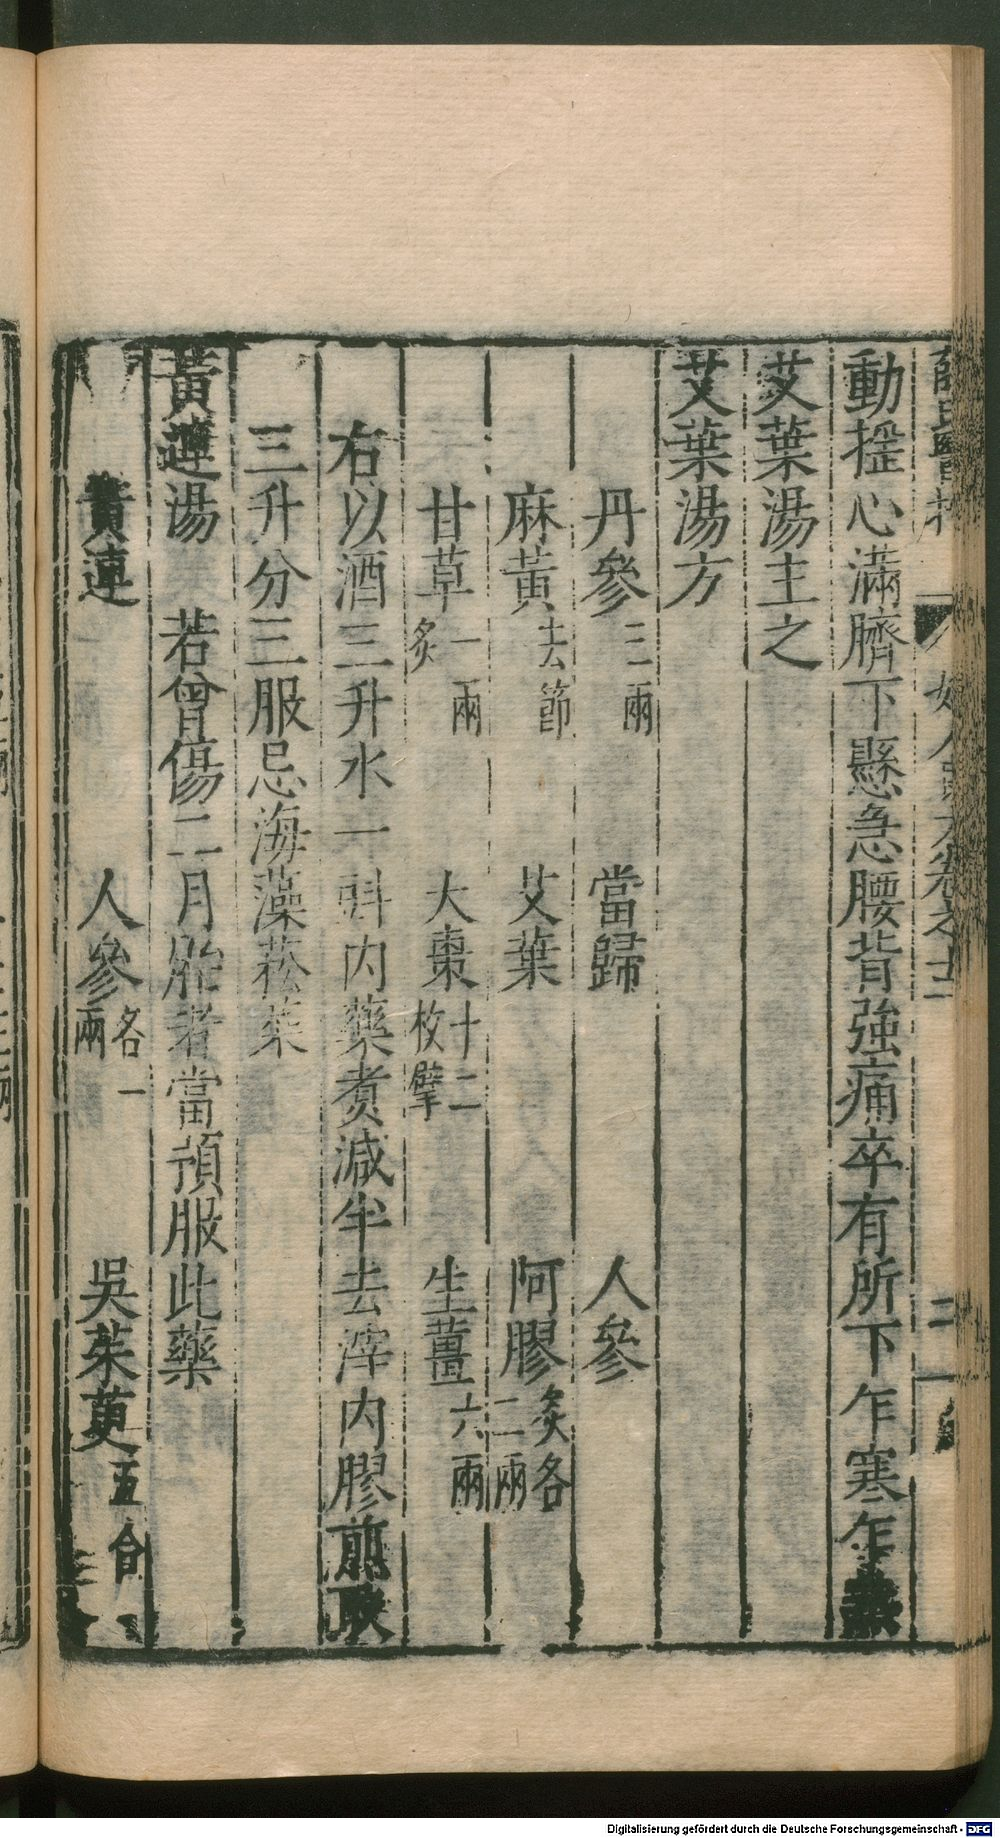 動搖心滿臍下懸急腰背強痛卒有所下乍寒乍
艾葉湯主之
艾葉湯方
丹參三兩 當歸 人參
麻黃去節 艾葉 阿膠炙各二兩
甘草一兩炙 大棗十二枚擘 生薑六兩
右以酒三升水一㪷内藥煑減半去滓内膠煎取
三升分三服忌海藻菘菜
黃連湯 若曾傷二月胎者當預服此藥
黃連 人參各一兩 吳茱萸五合
Digitalisierung gefördert durch die Deutsche Forschungsgemeinschaft - DFG